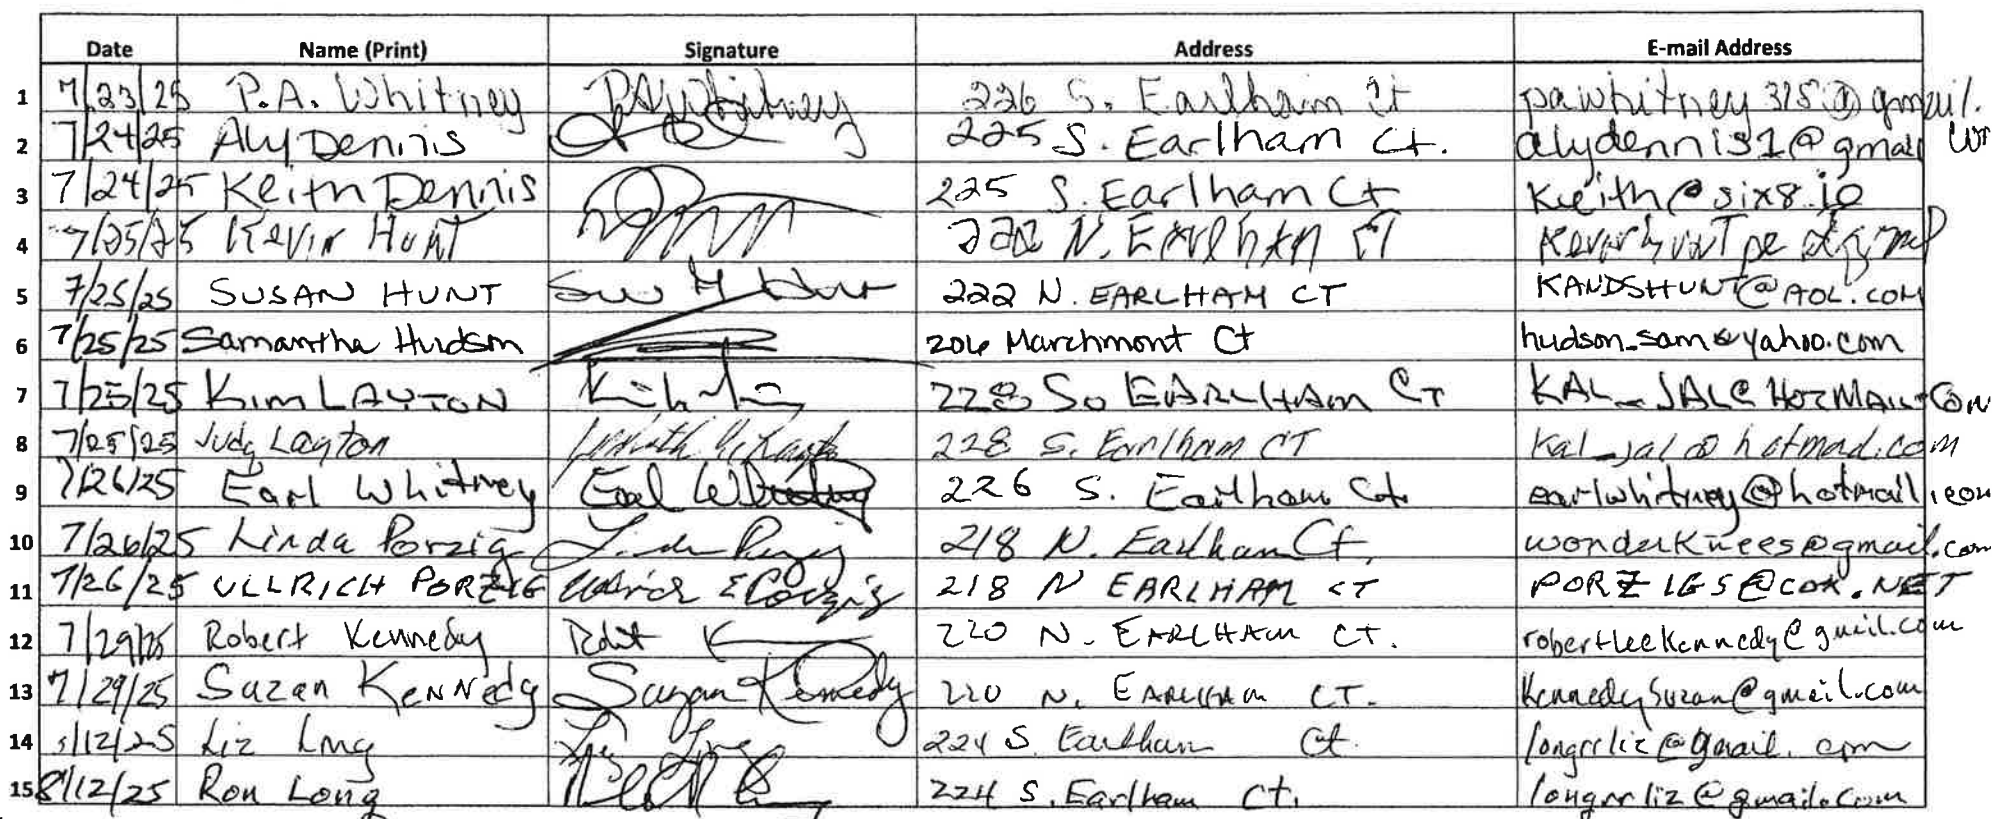 Date Name (Print) Signature Address E-mail Address
1 7/23/25 P.A. Whitney PAWhitney 226 S. Earlham Ct pawhitney315@gmail.
2 7/24/25 Aly Dennis 225 S. Earlham Ct. alydennis1@gmail
3 7/24/25 Keith Dennis 225 S. Earlham Ct Keith@six8.io
4 7/25/25 Kevin Hunt 222 N. Earlham CT
5 7/25/25 SUSAN HUNT 222 N. EARLHAM CT KANDSHUNT@AOL.COM
6 7/25/25 Samantha Hudson 206 Marchmont Ct hudson_sam@yahoo.com
7 7/25/25 Kim LAYTON 228 So EARLHAM CT KAL_JAL@HOTMAIL.COM
8 7/25/25 Judy Layton 228 S. Earlham CT kal_jal@hotmail.com
9 7/26/25 Earl Whitney Earl Whitney 226 S. Earlham Ct. earlwhitney@hotmail.com
10 7/26/25 Linda Porzig 218 N. Earlham Ct. wonderknees@gmail.com
11 7/26/25 ULLRICH PORZIG 218 N EARLHAM CT PORZIGS@COX.NET
12 7/29/25 Robert Kennedy 220 N. EARLHAM CT. robertleekennedy@gmail.com
13 7/29/25 Suzan Kennedy Suzan Kennedy 220 N. EARLHAM CT. kennedysuzan@gmail.com
14 /12/25 Liz Long Liz Long 224 S. Earlham Ct.
15 8/12/25 Ron Long 224 S. Earlham Ct.